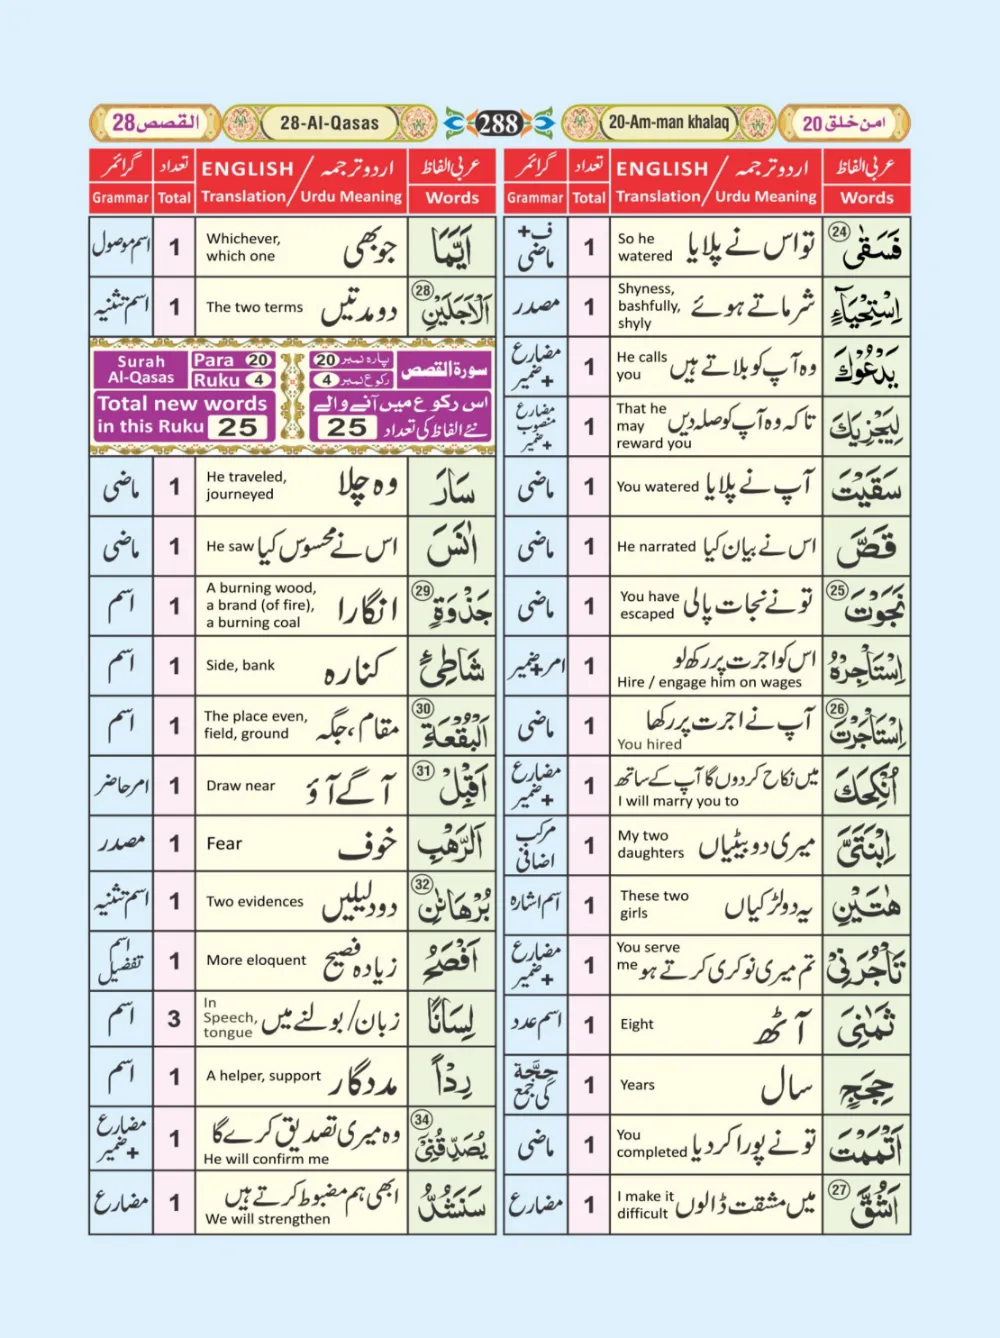 القصص 28
28-Al-Qasas
288
20-Am-man khalaq
امن خلق 20
عربی الفاظ اردو ترجمہ / ENGLISH تعداد گرائمر
Words Urdu Meaning / Translation Total Grammar
فَسَقٰی 24 تو اس نے پلایا So he watered 1 ف+ ماضی
اِسْتِحْیَآءٍ شرماتے ہوئے Shyness, bashfully, shyly 1 مصدر
یَدْعُوْكَ وہ آپ کو بلاتے ہیں He calls you 1 مضارع + ضمیر
لِیَجْزِیَكَ تاکہ وہ آپ کو صلہ دیں That he may reward you 1 مضارع منصوب + ضمیر
سَقَیْتَ آپ نے پلایا You watered 1 ماضی
قَصَّ اس نے بیان کیا He narrated 1 ماضی
نَجَوْتَ 25 تو نے نجات پالی You have escaped 1 ماضی
اِسْتَاْجِرْهُ اس کو اجرت پر رکھ لو Hire / engage him on wages 1 امر+ضمیر
اِسْتَاْجَرْتَ 26 آپ نے اجرت پر رکھا You hired 1 ماضی
اُنْكِحَكَ میں نکاح کردوں گا آپ کے ساتھ I will marry you to 1 مضارع + ضمیر
اِبْنَتَیَّ میری دو بیٹیاں My two daughters 1 مرکب اضافی
هٰتَیْنِ یہ دو لڑکیاں These two girls 1 اسم اشارہ
تَاْجُرَنِیْ تم میری نوکری کرتے ہو You serve me 1 مضارع + ضمیر
ثَمٰنِیَ آٹھ Eight 1 اسم عدد
حِجَجٍ سال Years 1 حِجَّة کی جمع
اَتْمَمْتَ تو نے پورا کردیا You completed 1 ماضی
اَشُقَّ 27 میں مشقت ڈالوں I make it difficult 1 مضارع
عربی الفاظ اردو ترجمہ / ENGLISH تعداد گرائمر
Words Urdu Meaning / Translation Total Grammar
اَیَّمَا جو بھی Whichever, which one 1 اسم موصول
اَلْاَجَلَیْنِ 28 دو مدتیں The two terms 1 اسم تثنیہ
Surah Al-Qasas Para 20 Ruku 4
Total new words in this Ruku 25
سورۃ القصص پارہ نمبر 20 رکوع نمبر 4
اس رکوع میں آنے والے نئے الفاظ کی تعداد 25
سَارَ وہ چلا He traveled, journeyed 1 ماضی
اٰنَسَ اس نے محسوس کیا He saw 1 ماضی
جَذْوَةٍ 29 انگارا A burning wood, a brand (of fire), a burning coal 1 اسم
شَاطِئِ کنارہ Side, bank 1 اسم
اَلْبُقْعَةِ 30 مقام، جگہ The place even, field, ground 1 اسم
اَقْبِلْ 31 آگے آؤ Draw near 1 امر حاضر
اَلرَّهْبِ خوف Fear 1 مصدر
بُرْهَانٰنِ 32 دو دلیلیں Two evidences 1 اسم تثنیہ
اَفْصَحُ زیادہ فصیح More eloquent 1 اسم تفضیل
لِسَانًا زبان/بولنے میں In Speech, tongue 3 اسم
رِدْاً مددگار A helper, support 1 اسم
یُصَدِّقُنِیْ 34 وہ میری تصدیق کرے گا He will confirm me 1 مضارع + ضمیر
سَنَشُدُّ ابھی ہم مضبوط کرتے ہیں We will strengthen 1 مضارع